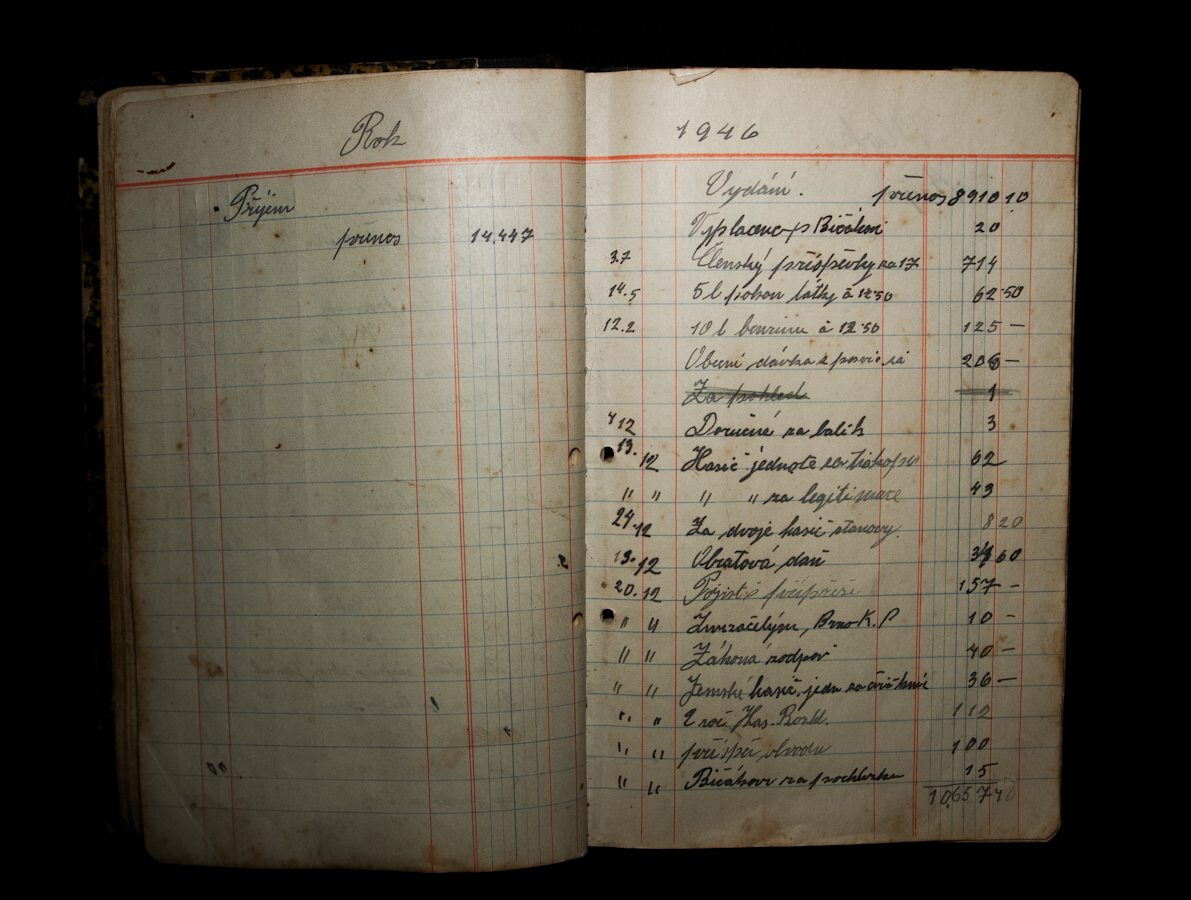 Rok
Příjem
přenos 14.447
1946
Vydání. přenos 8910 10
Vyplaceno p Bičákovi 20
3.7 Členský příspěvky za 17 714
14.5 5 l pohon látky á 12.50 62.50
12.2 10 l benzinu á 12.50 125 —
Obecní dávka z 206 —
Za pohled 1
4 12 Doručné za balík 3
13. 12 Hasič jednotě za 62
" " " " za legitimace 49
24.12 Za dvoje hasič stanovy. 8 20
13.12 Obratová daň 60
20.12 157 —
" " Brno K. P 10 —
" " Zákona zodpov 40 —
" " Zemské hasič. jedn za 36 —
" " 2 roč Has. Rozhl. 112
" " příspě obvodu 100
" " Bičákovi za 15
10.657 40